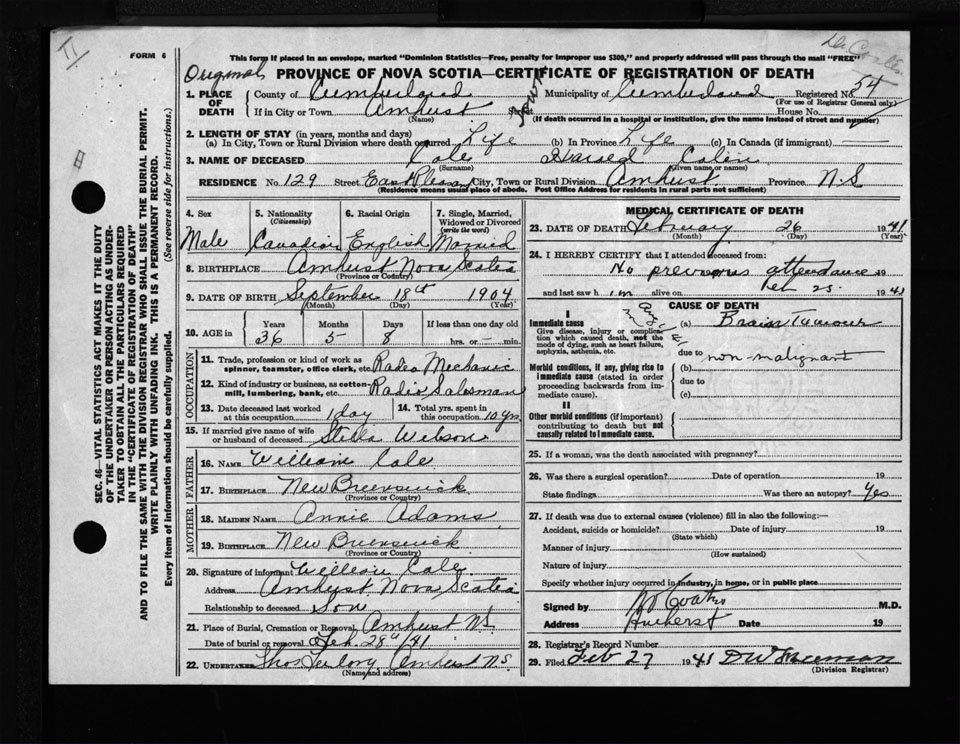 II
FORM 6
This form if placed in an envelope, marked "Dominion Statistics—Free, penalty for improper use $300," and properly addressed will pass through the mail "FREE"
Original PROVINCE OF NOVA SCOTIA—CERTIFICATE OF REGISTRATION OF DEATH
SEC. 46—VITAL STATISTICS ACT MAKES IT THE DUTY
OF THE UNDERTAKER OR PERSON ACTING AS UNDER-
TAKER TO OBTAIN ALL THE PARTICULARS REQUIRED
IN THE "CERTIFICATE OF REGISTRATION OF DEATH"
AND TO FILE THE SAME WITH THE DIVISION REGISTRAR WHO SHALL ISSUE THE BURIAL PERMIT.
WRITE PLAINLY WITH UNFADING INK. THIS IS A PERMANENT RECORD.
Every item of information should be carefully supplied. (See reverse side for instructions.)
1. PLACE OF DEATH
County of Cumberland Municipality of Cumberland Registered No. 54
(For use of Registrar General only)
If in City or Town Amherst Street House No.
(Name) (If death occurred in a hospital or institution, give the name instead of street and number)
2. LENGTH OF STAY (in years, months and days)
(a) In City, Town or Rural Division where death occurred Life (b) In Province Life (c) In Canada (if immigrant) —
3. NAME OF DECEASED Cole Harold
(Surname) (Given name or names)
RESIDENCE No. 129 Street East Pleasant City, Town or Rural Division Amhust Province N.S
(Residence means usual place of abode. Post Office Address for residents in rural parts not sufficient)
4. Sex 5. Nationality (Citizenship) 6. Racial Origin 7. Single, Married, Widowed or Divorced (write the word)
Male Canadian English Married
8. BIRTHPLACE Amhust Nova Scotia
(Province or Country)
9. DATE OF BIRTH September 18th 1904
(Month) (Day) (Year)
10. AGE in Years Months Days If less than one day old
36 5 8 hrs. or — min.
OCCUPATION
11. Trade, profession or kind of work as spinner, teamster, office clerk, etc. Radio Mechanic
12. Kind of industry or business, as cotton-mill, lumbering, bank, etc. Radio Salesman
13. Date deceased last worked at this occupation 1 day 14. Total yrs. spent in this occupation 10 yrs
15. If married give name of wife or husband of deceased Stella Wilson
FATHER
16. NAME William Cole
17. BIRTHPLACE New Brunswick
(Province or Country)
MOTHER
18. MAIDEN NAME Annie Adams
19. BIRTHPLACE New Brunswick
(Province or Country)
20. Signature of informant William Cole
Address Amhust Nova Scotia
Relationship to deceased Son
21. Place of Burial, Cremation or Removal Amhust NS.
Date of burial or removal Feb 28th/41
22. UNDERTAKER Amhust N.S
(Name and address)
MEDICAL CERTIFICATE OF DEATH
23. DATE OF DEATH February 26 1941
(Month) (Day) (Year)
24. I HEREBY CERTIFY that I attended deceased from:
No previous attendance 19
and last saw him alive on Feb 25. 1941
CAUSE OF DEATH
I
Immediate cause
Give disease, injury or complication which caused death, not the mode of dying, such as heart failure, asphyxia, asthenia, etc.
(a) Brain Tumour
due to non-malignant
Morbid conditions, if any, giving rise to immediate cause (stated in order proceeding backwards from immediate).
(b)
due to
(c)
II
Other morbid conditions (if important) contributing to death but not causally related to immediate cause.
25. If a woman, was the death associated with pregnancy?
26. Was there a surgical operation? Date of operation 19
State findings Was there an autopsy? Yes
27. If death was due to external causes (violence) fill in also the following:—
Accident, suicide or homicide? Date of injury 19
(State which)
Manner of injury
(How sustained)
Nature of injury
Specify whether injury occurred in industry, in home, or in public place
Signed by M.D.
Address Amherst Date 19
28. Registrar's Record Number
29. Filed Feb 27 1941 D W Freeman
(Division Registrar)